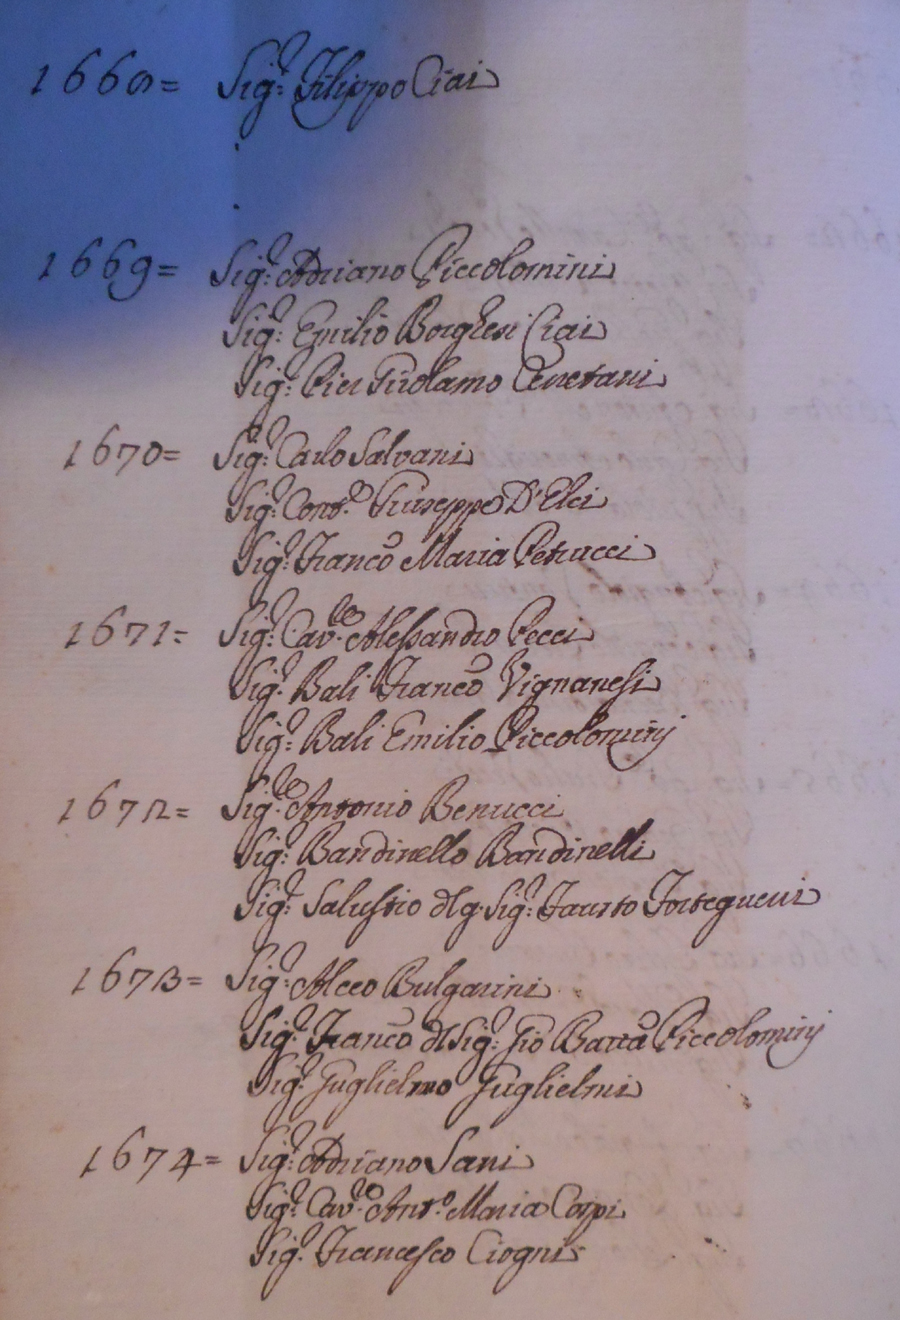 1668= Sig.r Filippo Ciai
1669= Sig.r Adriano Piccolomini
Sig.r Emilio Borghesi Ciai
Sig.r Pier Girolamo Cenetani
1670= Sig.r Carlo Salvani
Sig.r Con.te Giuseppe D'Elci
Sig.r Franco Maria Petrucci
1671= Sig.r Cav.re Alessandro Pecci
Sig.r Bali Franco Vignanesi
Sig.r Bali Emilio Piccolominj
1672= Sig.re Antonio Benucci
Sig.r Bandinello Bandinelli
Sig.r Salustio dlg. Sig.r Fausto Forteguerri
1673= Sig.r Alceo Bulgarini
Sig.r Franco dl Sig.r Gio Batta Piccolominj
Sig.r Guglielmo Guglielmi
1674= Sig.r Adriano Sani
Sig.r Cav.re Ant.o Maria Corpi
Sig.r Francesco Ciogni